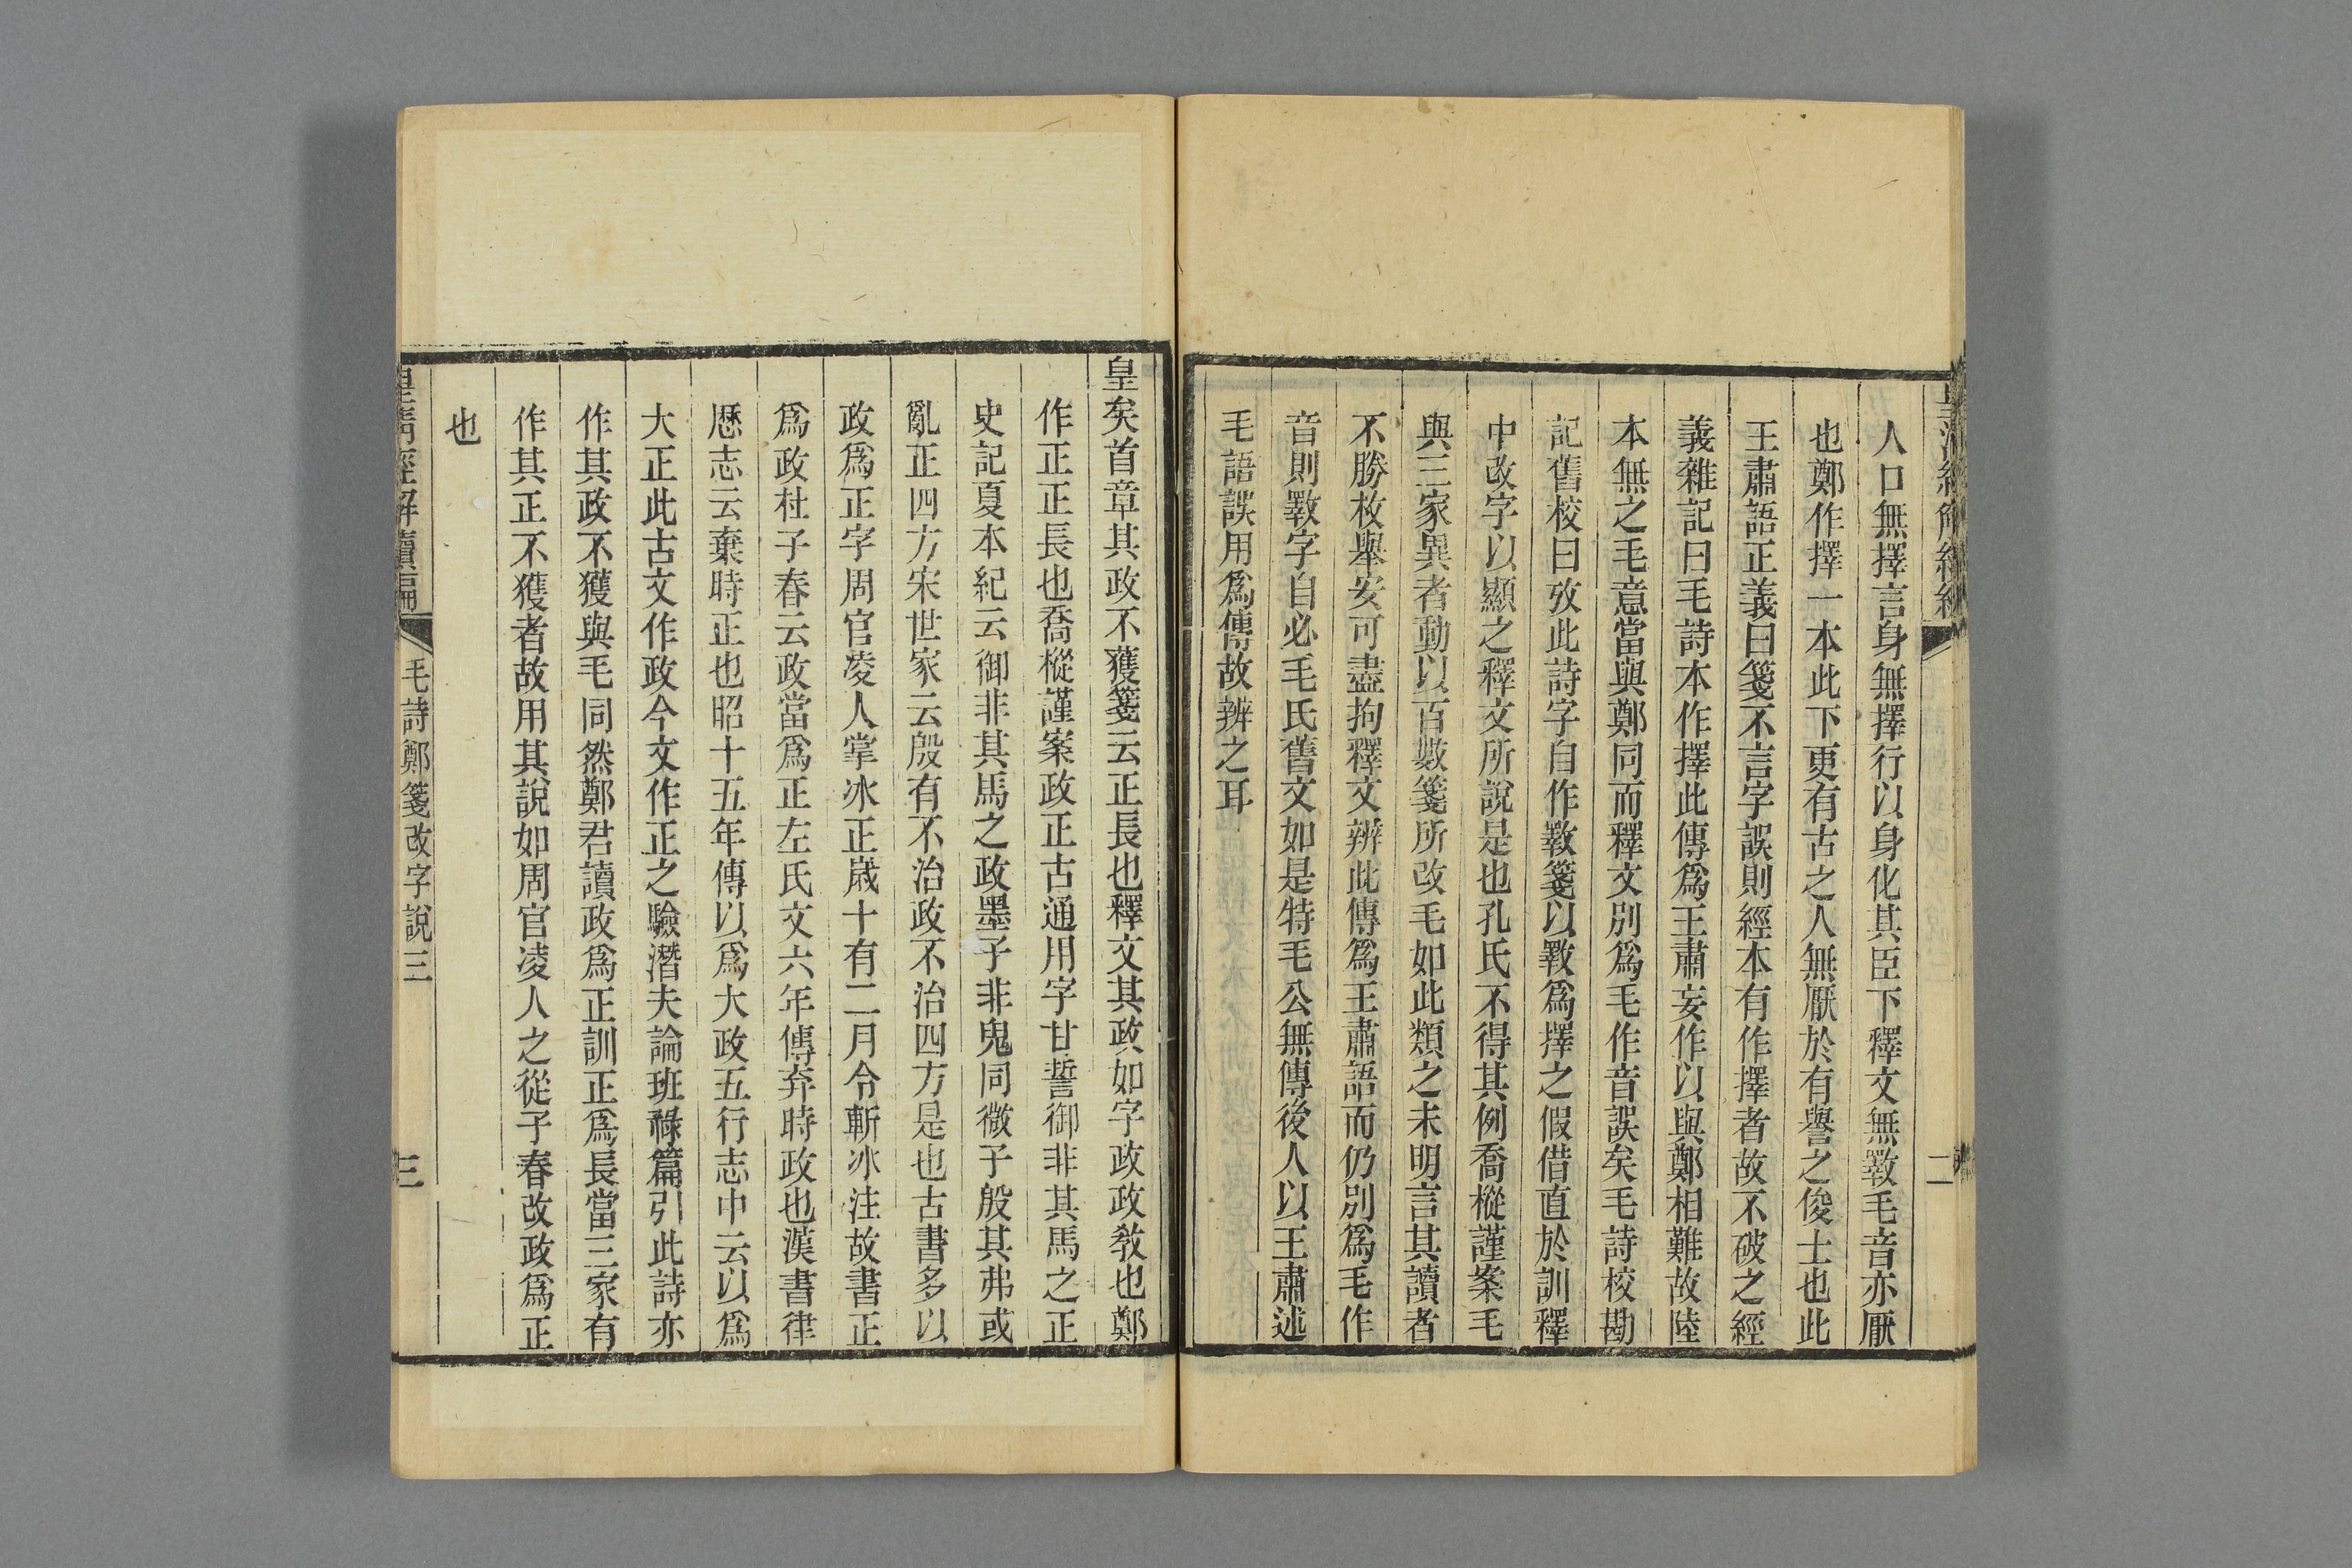 人口無擇言身無擇行以身化其臣下釋文無斁毛音亦厭
也鄭作擇一本此下更有古之人無厭於有譽之俊士也此
王肅語正義曰箋不言字誤則經本有作擇者故不破之經
義雜記曰毛詩本作擇此傳爲王肅妄作以與鄭相難故陸
本無之毛意當與鄭同而釋文別爲毛作音誤矣毛詩校勘
記舊校曰攷此詩字自作斁箋以斁爲擇之假借直於訓釋
中改字以顯之釋文所說是也孔氏不得其例喬樅謹案毛
與三家異者動以百數箋所改毛如此類之未明言其讀者
不勝枚舉安可盡拘釋文辨此傳爲王肅語而仍別爲毛作
音則斁字自必毛氏舊文如是特毛公無傳後人以王肅述
毛語誤用爲傳故辨之耳
皇矣首章其政不獲箋云正長也釋文其政如字政政敎也鄭
作正正長也喬樅謹案政正古通用字甘誓御非其馬之正
史記夏本紀云御非其馬之政墨子非鬼同微子殷其弗或
亂正四方宋世家云殷有不治政不治四方是也古書多以
政爲正字周官凌人掌冰正歲十有二月令斬冰注故書正
爲政杜子春云政當爲正左氏文六年傳弃時政也漢書律
厯志云棄時正也昭十五年傳以爲大政五行志中云以爲
大正此古文作政今文作正之驗潛夫論班祿篇引此詩亦
作其政不獲與毛同然鄭君讀政爲正訓正爲長當三家有
作其正不獲者故用其說如周官凌人之從子春改政爲正
也
皇淸經解續編
毛詩鄭箋改字說三
三